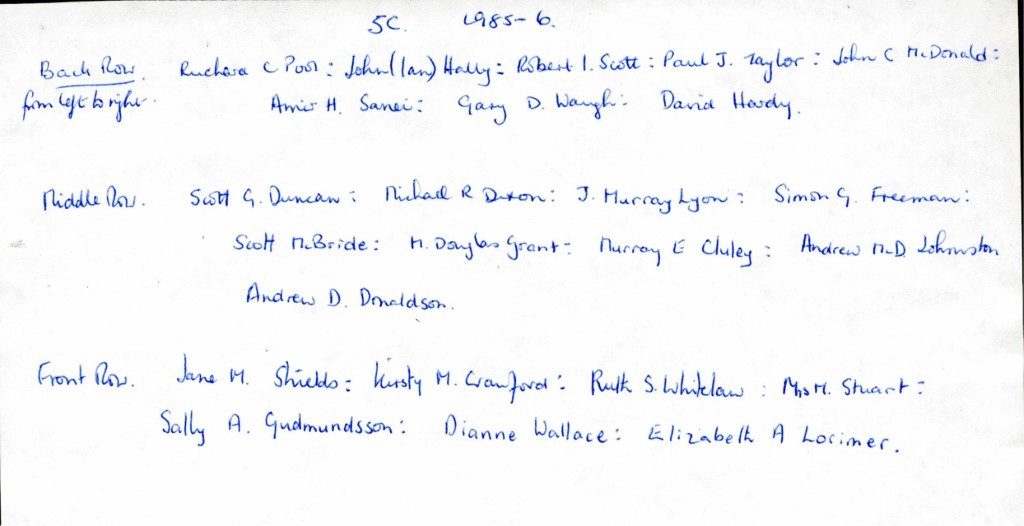 5C. 1985-6.
Back Row. Richard C Pool : John (Ian) Hally : Robert I. Scott : Paul J. Taylor : John C McDonald :
from left to right. Amir H. Sanei : Gary D. Waugh : David Hardy.
Middle Row. Scott G. Duncan : Michael R Dixon : J. Murray Lyon : Simon G. Freeman :
Scott McBride : M. Douglas Grant : Murray E Cluley : Andrew M.D. Johnston
Andrew D. Donaldson.
Front Row. Jane M. Shields : Kirsty M. Crawford : Ruth S. Whitelaw : Mrs M. Stuart :
Sally A. Gudmundsson : Dianne Wallace : Elizabeth A Lorimer.